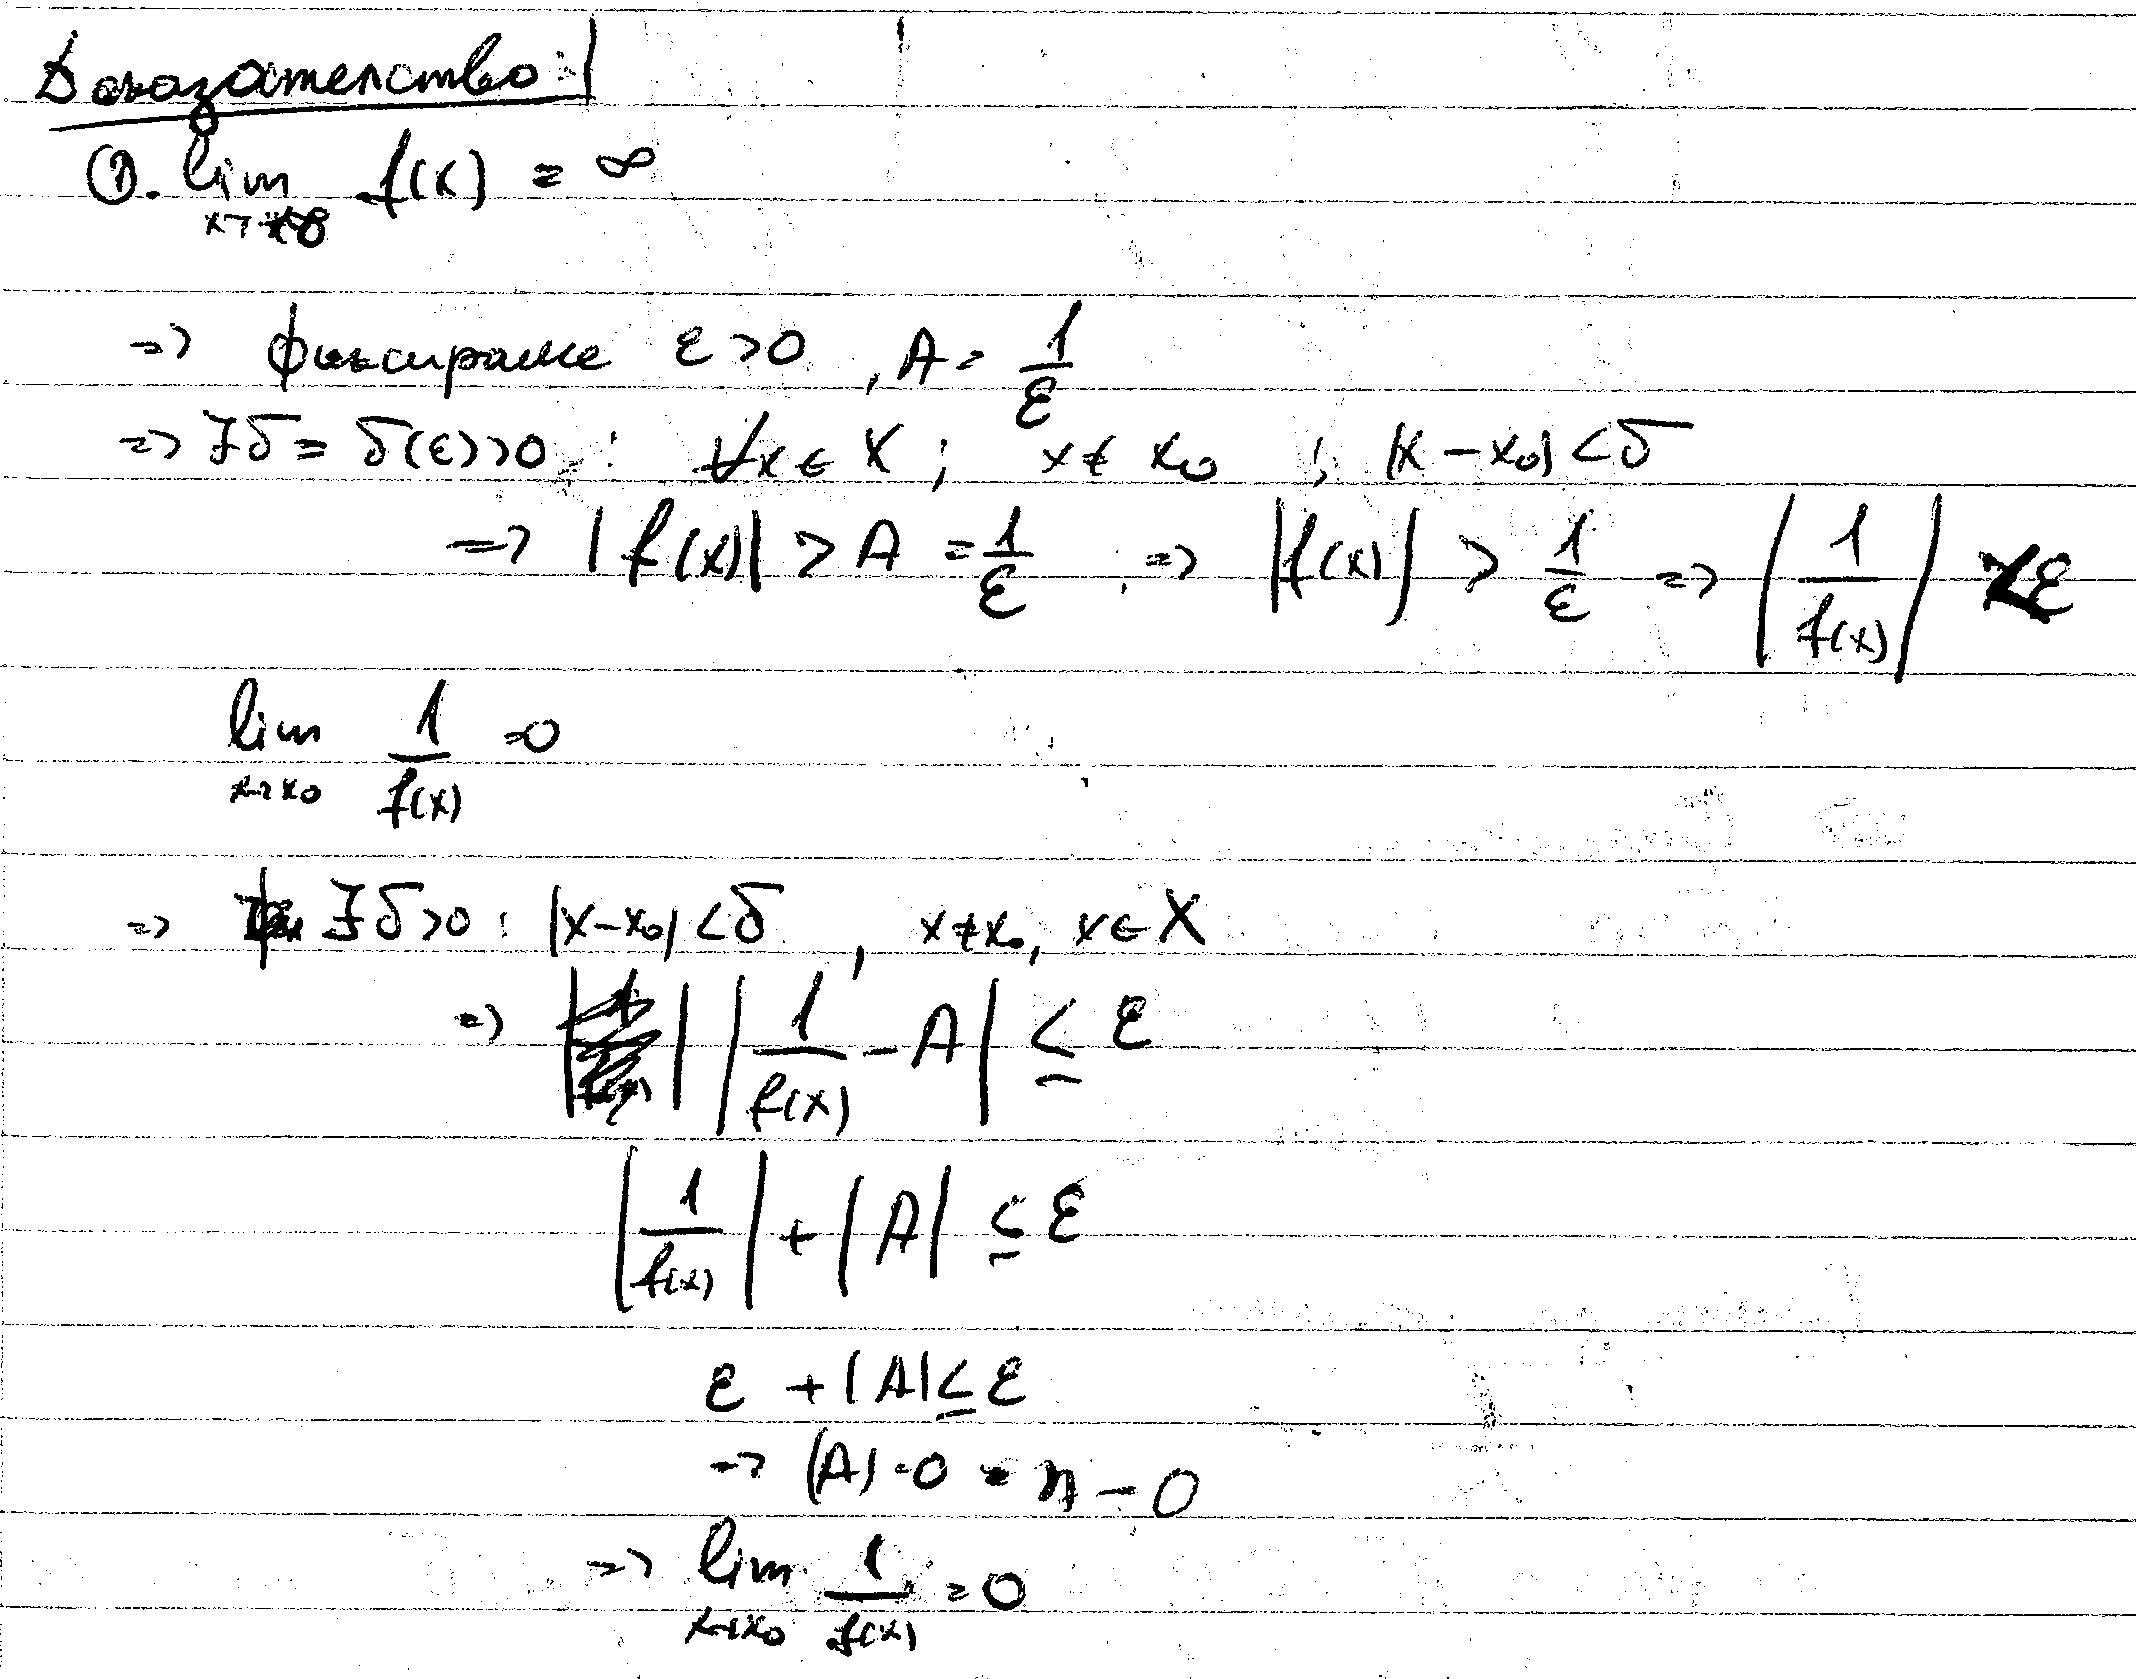 Доказателство:
①. lim f(x) = ∞
x→x0
=> фиксираме ε>0, A = 1/ε
=> ∃δ = δ(ε)>0 : ∀x∈X; x≠x0 ; |x-x0|<δ
=> |f(x)| > A = 1/ε => |f(x)| > 1/ε => |1/f(x)| < ε
lim 1/f(x) = 0
x→x0
=> ∃δ>0 : |x-x0|<δ, x≠x0, x∈X
=> |1/f(x) - A| ≤ ε
|1/f(x)| + |A| ≤ ε
ε + |A| ≤ ε
=> |A| = 0 = A = 0
=> lim 1/f(x) = 0
x→x0